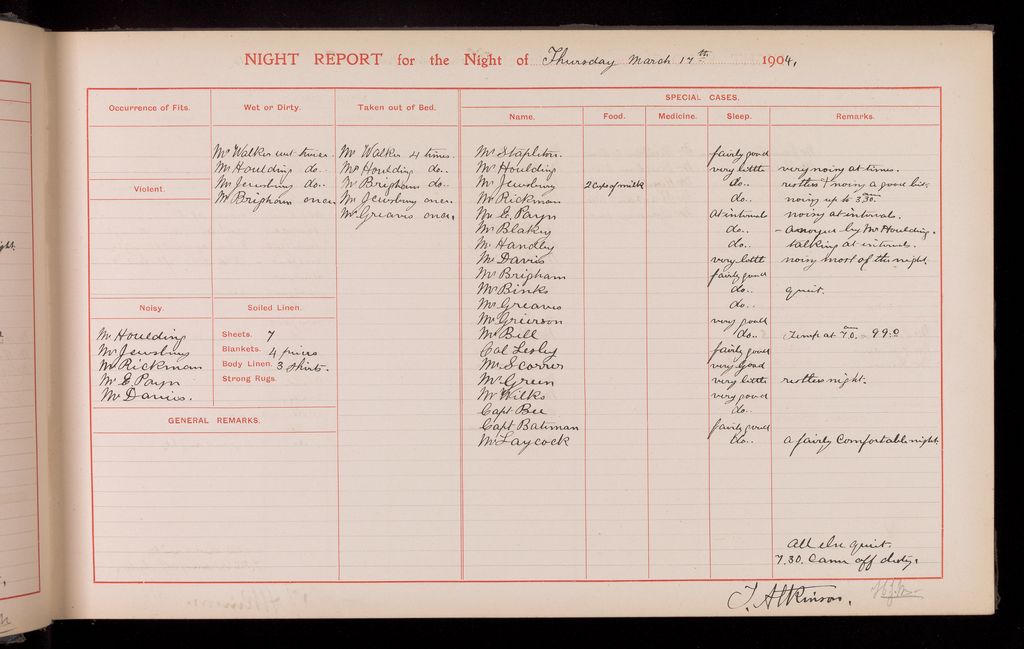 NIGHT REPORT for the Night of Thursday March 17th 1904,
Occurrence of Fits.
Wet or Dirty.
Mr Walker wet twice.
Mr Houlding do..
Mr Jewsbury do..
Mr Brigham once
Taken out of Bed.
Mr Walker 4 times.
Mr Houlding do..
Mr Brigham do..
Mr Jewsbury once.
Mr Greaves once,
Violent.
Noisy.
Mr Houlding
Mr Jewsbury
Mr Rickman
Mr E. Payn
Mr Davies.
Soiled Linen.
Sheets. 7
Blankets. 4 pieces
Body Linen. 3 shirts.
Strong Rugs.
GENERAL REMARKS.
SPECIAL CASES.
Name. Food. Medicine. Sleep. Remarks.
Mr Stapleton. fairly good
Mr Houlding very little very noisy at times.
Mr Jewsbury 2 Cups of milk do.. restless & noisy a good bit.
Mr Rickman do.. noisy up to 3.30 am
Mr E. Payn at intervals noisy at intervals.
Mr Blakey do.. - annoyed by Mr Houlding.
Mr Handley do.. talking at intervals.
Mr Davies very little noisy most of the night.
Mr Brigham fairly good
Mr Binks do.. quiet.
Mr Greaves do..
Mr Grierson very good
Mr Bill do.. Temp at 7.0 am - 99.0
Col Lesley fairly good
Mr Scorrer very good
Mr Green very little restless night.
Mr Wilks very good
Capt Bee do..
Capt Bateman fairly good
Mr Laycock do.. a fairly Comfortable night
All else quiet.
7.30. Came off duty,
T. Atkinson.